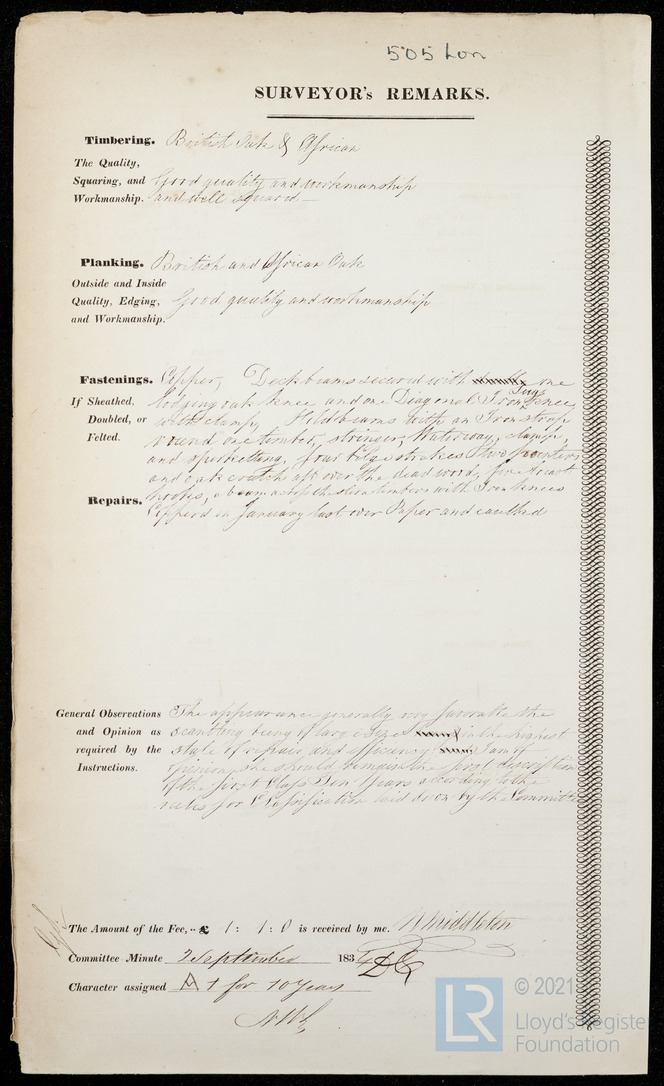 505 Lon
SURVEYOR's REMARKS.
Timbering. British Oak & African
The Quality,
Squaring, and Good quality and workmanship
Workmanship. and well squared —
Planking. British and African Oak
Outside and Inside
Quality, Edging, Good quality and workmanship
and Workmanship.
Fastenings. Copper, Deck beams secured with one
If Sheathed, lodging oak knee and one Diagonal Iron knee
Doubled, or with clamp, Hold beams with an Iron strop
Felted. round one timber, stringer, Waterway, clamp,
and spirketting, four bilge strakes, two pointers
and oak crutch aft over the dead wood, five breast
Repairs. hooks, a beam athwart the stern timbers with Iron knees
Copper'd in January last over Paper and caulked
General Observations The appearance generally very favorable the
and Opinion as scantling being of large size in the highest
required by the state of repair and efficiency I am of
Instructions. opinion she should remain the first description
of the first Class Ten Years according to the
rules for Classification laid down by the Committee
The Amount of the Fee, ·· £ 1 : 1 : 0 is received by me. Middleton
Committee Minute 2 September 1834
Character assigned A 1 for 10 Years
© 2021
LR
Lloyd's Register
Foundation